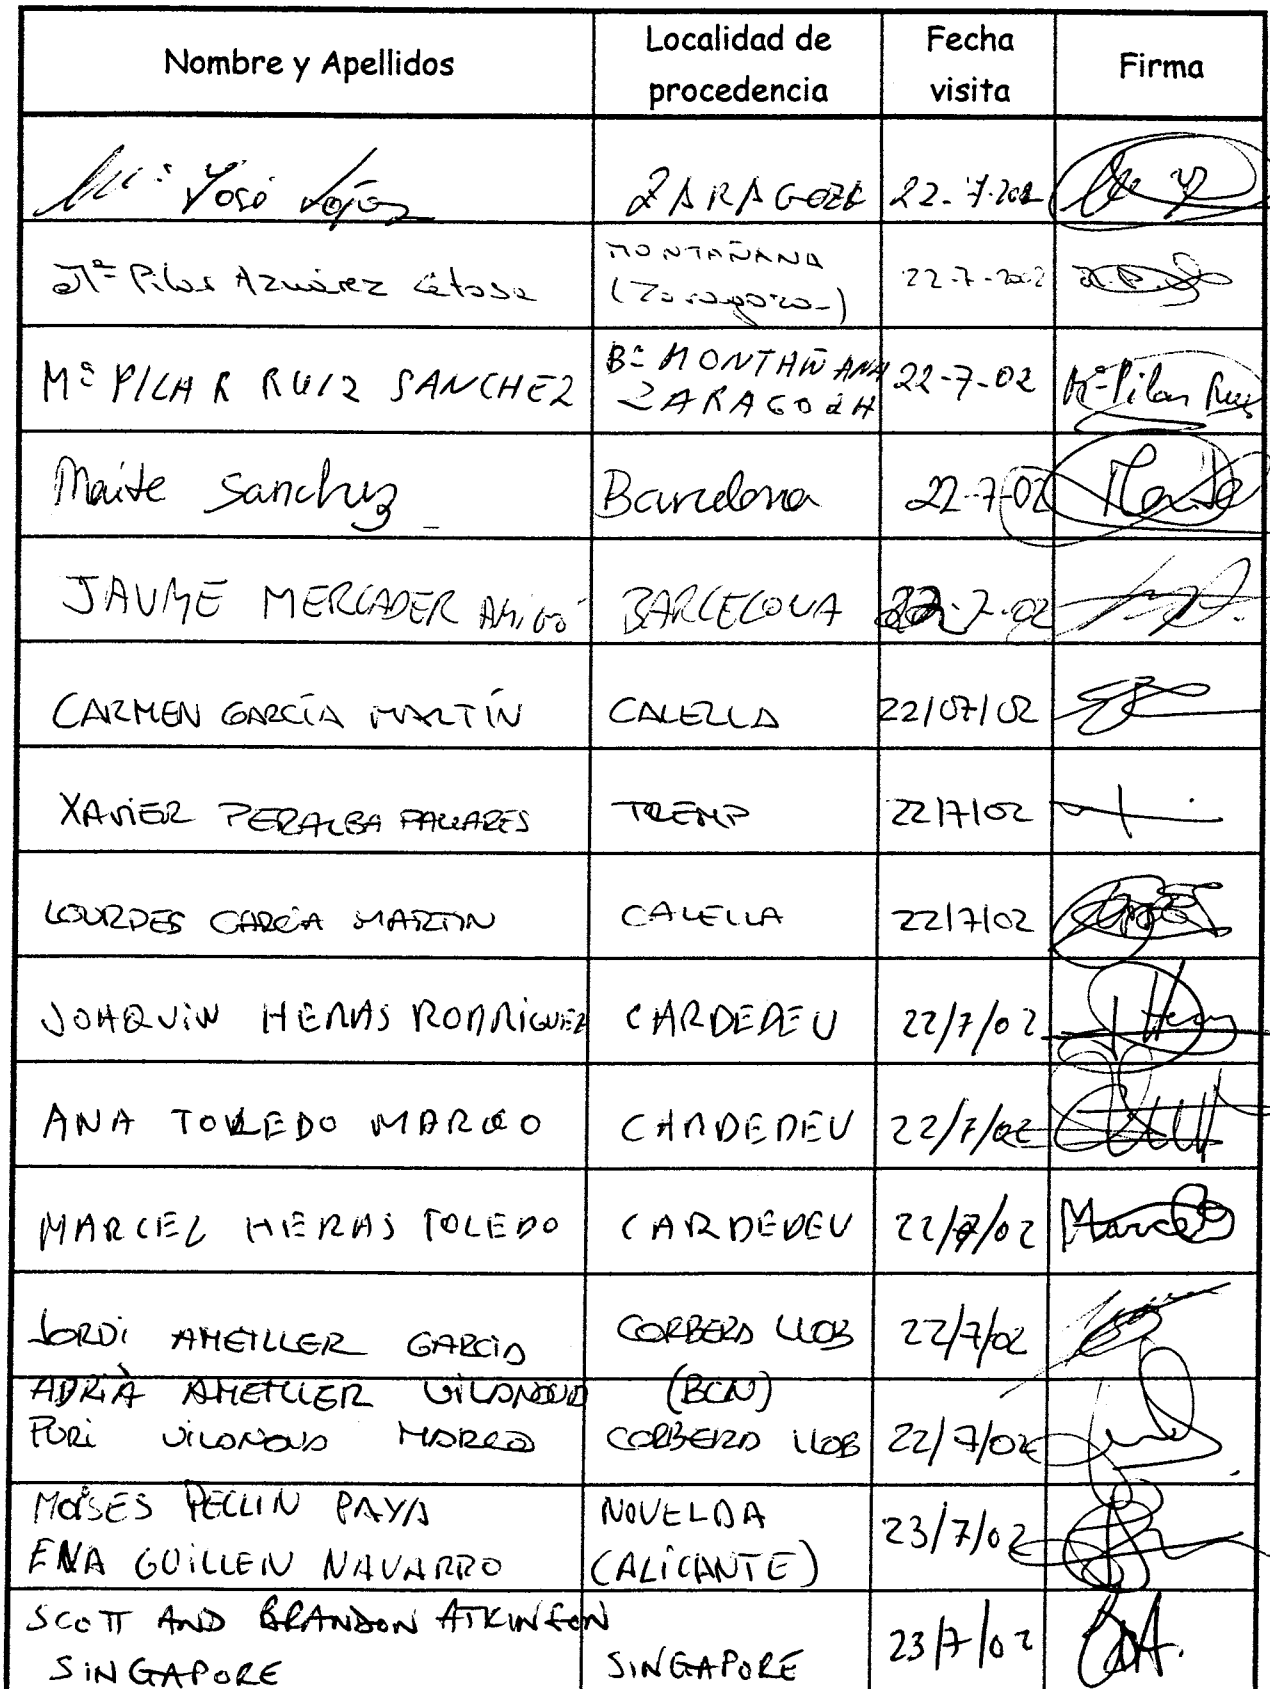 Nombre y Apellidos
Localidad de
procedencia
Fecha
visita
Firma
Mª José López ZARAGOZA 22-7-202
Mª Pilar Aznárez MONTAÑANA 22-7-2002
(Zaragoza)
Mª PILAR RUIZ SANCHEZ Bº MONTAÑANA 22-7-02 Mª Pilar Ruiz
ZARAGOZA
Maite Sanchez Barcelona 22-7-02 Maite
JAUME MERCADER AMIGÓ BARCELONA 22-7-02
CARMEN GARCÍA MARTÍN CALELLA 22/07/02
XAVIER PERALBA PALLARES TREMP 22/7/02
LOURDES GARCÍA MARTIN CALELLA 22/7/02
JOAQUIN HERAS RODRIGUEZ CARDEDEU 22/7/02 J Heras
ANA TOLEDO MARCO CARDEDEU 22/7/02
MARCEL HERAS TOLEDO CARDEDEU 22/7/02 Marcel
JORDI AMETLLER GARCIA CORBERA LLOB 22/7/02
ADRIÀ AMETLLER VILANOVA (BCN)
PURI VILANOVA MARCO CORBERA LLOB 22/7/02
MOISES PELLIN PAYA NOVELDA 23/7/02
ENA GUILLEN NAVARRO (ALICANTE)
SCOTT AND BRANDON ATKINSON
SINGAPORE SINGAPORE 23/7/02